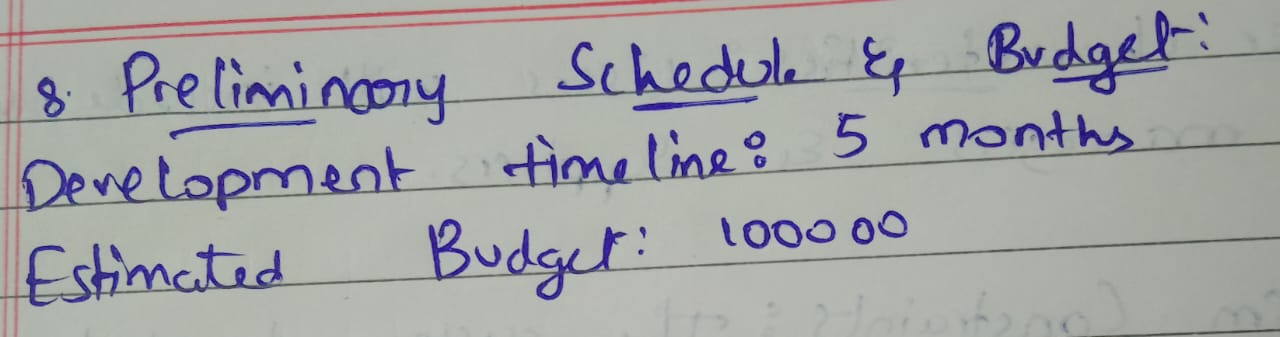 8. Preliminary Schedule & Budget:
Development timeline: 5 months
Estimated Budget: 100000